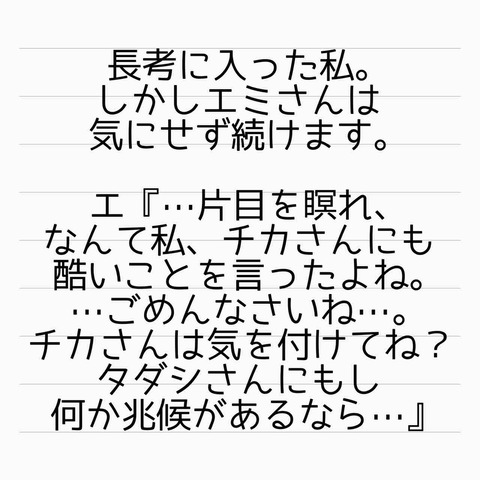 長考に入った私。
しかしエミさんは
気にせず続けます。
エ『…片目を瞑れ、
なんて私、チカさんにも
酷いことを言ったよね。
…ごめんなさいね…。
チカさんは気を付けてね？
タダシさんにもし
何か兆候があるなら…』